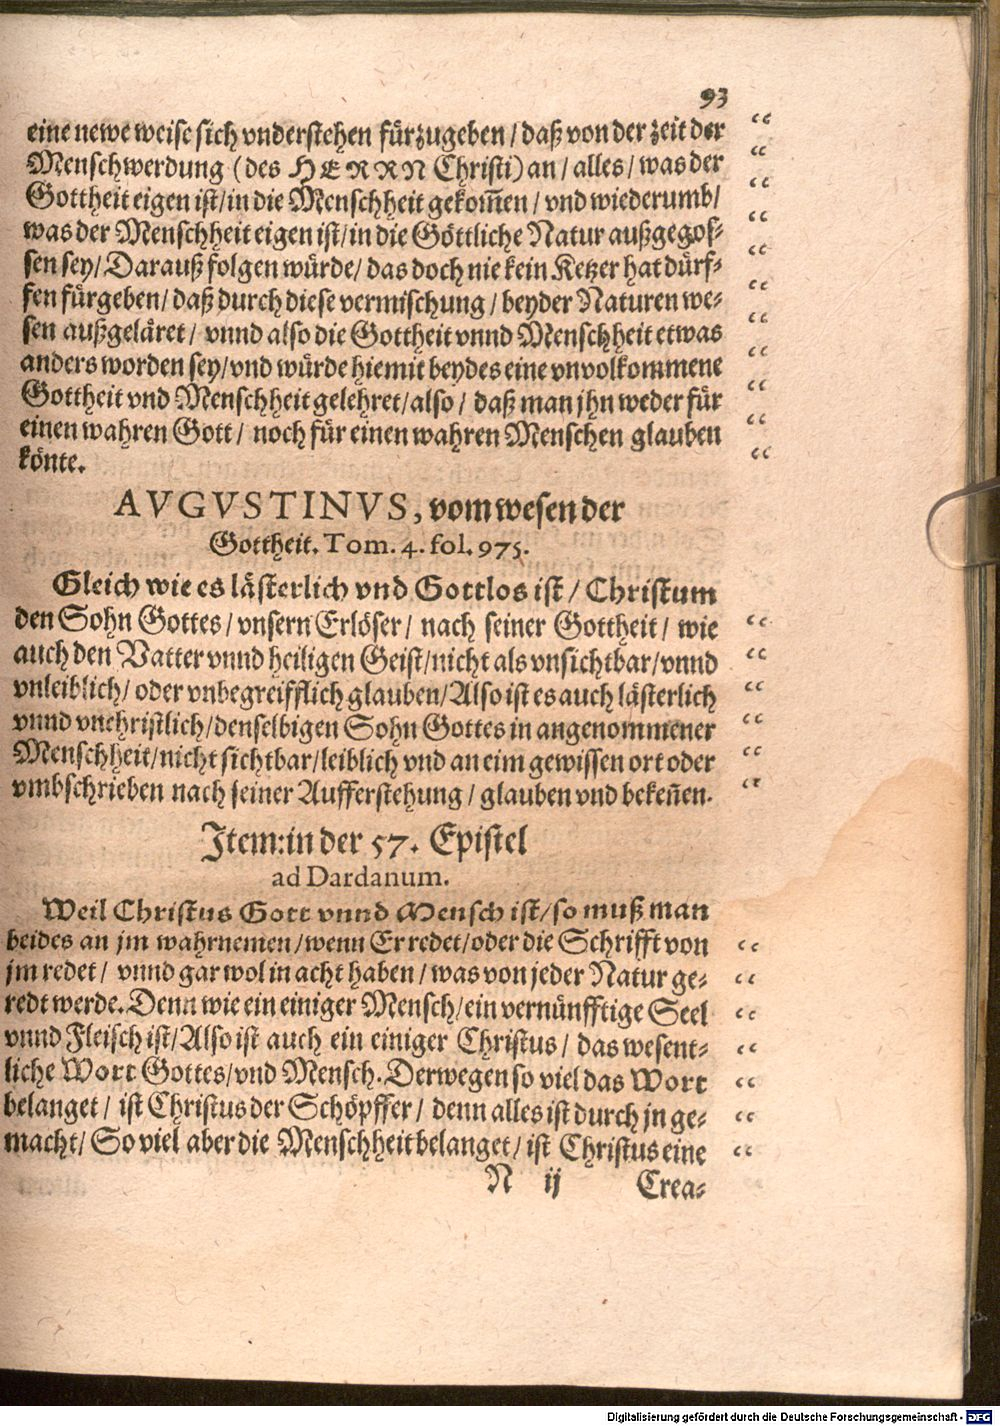 93
eine newe weise sich vnderstehen fürzugeben / daß von der zeit der
Menschwerdung (des HERRN Christi) an / alles / was der
Gottheit eigen ist / in die Menschheit gekom̃en / vnd wiederumb /
was der Menschheit eigen ist / in die Göttliche Natur außgegos-
sen sey / Darauß folgen würde / das doch nie kein Ketzer hat dürf-
fen fürgeben / daß durch diese vermischung / beyder Naturen we-
sen außgeläret / vnnd also die Gottheit vnnd Menschheit etwas
anders worden sey / vnd würde hiemit beydes eine vnvolkommene
Gottheit vnd Menschheit gelehret / also / daß man jhn weder für
einen wahren Gott / noch für einen wahren Menschen glauben
könte.
AVGVSTINVS, vom wesen der
Gottheit. Tom. 4. fol. 975.
Gleich wie es lästerlich vnd Gottlos ist / Christum
den Sohn Gottes / vnsern Erlöser / nach seiner Gottheit / wie
auch den Vatter vnnd heiligen Geist / nicht als vnsichtbar / vnnd
vnleiblich / oder vnbegreifflich glauben / Also ist es auch lästerlich
vnnd vnchristlich / denselbigen Sohn Gottes in angenommener
Menschheit / nicht sichtbar / leiblich vnd an eim gewissen ort oder
vmbschrieben nach seiner Aufferstehung / glauben vnd bekeñen.
Item: in der 57. Epistel
ad Dardanum.
Weil Christus Gott vnnd Mensch ist / so muß man
beides an jm wahrnemen / wenn Er redet / oder die Schrifft von
jm redet / vnnd gar wol in acht haben / was von jeder Natur ge-
redt werde. Denn wie ein einiger Mensch / ein vernünfftige Seel
vnnd Fleisch ist / Also ist auch ein einiger Christus / das wesent-
liche Wort Gottes / vnd Mensch. Derwegen so viel das Wort
belanget / ist Christus der Schöpffer / denn alles ist durch jn ge-
macht / So viel aber die Menschheit belanget / ist Christus eine
N ij Crea-
Digitalisierung gefördert durch die Deutsche Forschungsgemeinschaft - DFG